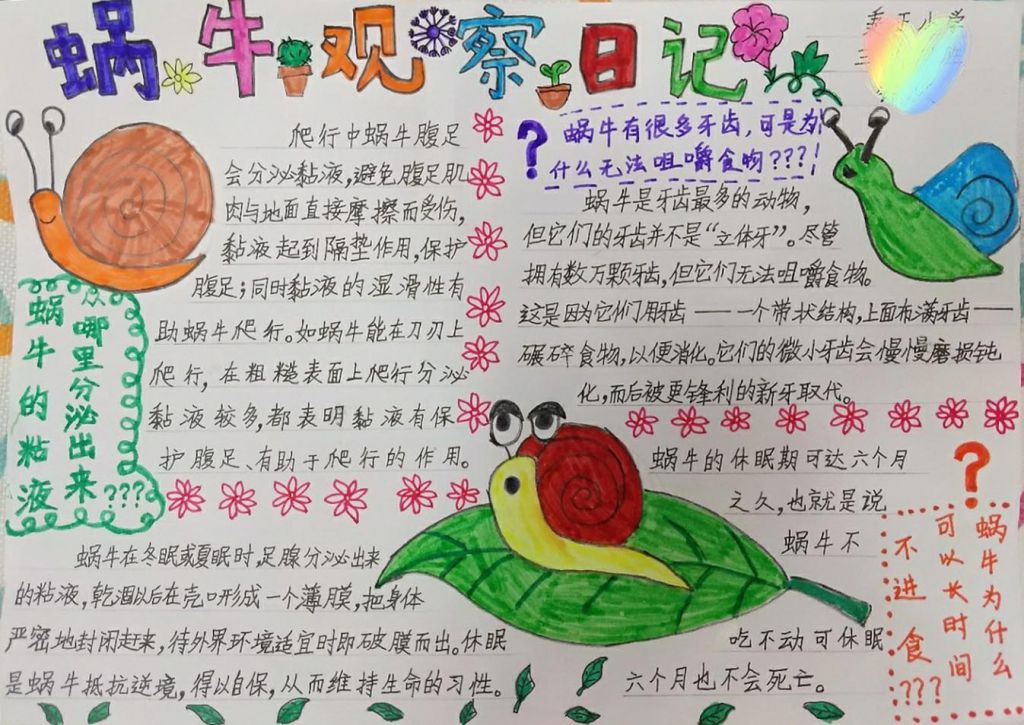 蜗牛观察日记
爬行中蜗牛腹足
会分泌黏液,避免腹足肌
肉与地面直接摩擦而受伤,
黏液起到隔垫作用,保护
腹足;同时黏液的湿滑性有
助蜗牛爬行。如蜗牛能在刀刃上
爬行,在粗糙表面上爬行分泌
黏液较多,都表明黏液有保
护腹足、有助于爬行的作用。
蜗牛的粘液
从哪里分泌出来
???
蜗牛在冬眠或夏眠时,足腺分泌出来
的粘液,乾涸以后在壳口形成一个薄膜,把身体
严密地封闭赶来,待外界环境适宜时即破膜而出。休眠
是蜗牛抵抗逆境,得以自保,从而维持生命的习性。
? 蜗牛有很多牙齿,可是为
什么无法咀嚼食物???!
蜗牛是牙齿最多的动物,
但它们的牙齿并不是“立体牙”。尽管
拥有数万颗牙齿,但它们无法咀嚼食物。
这是因为它们用牙齿——一个带状结构,上面布满牙齿——
碾碎食物,以便消化。它们的微小牙齿会慢慢磨损钝
化,而后被更锋利的新牙取代。
蜗牛的休眠期可达六个月
之久,也就是说
蜗牛不
吃不动可休眠
六个月也不会死亡。
?
蜗牛为什么
可以长时间
不进食???